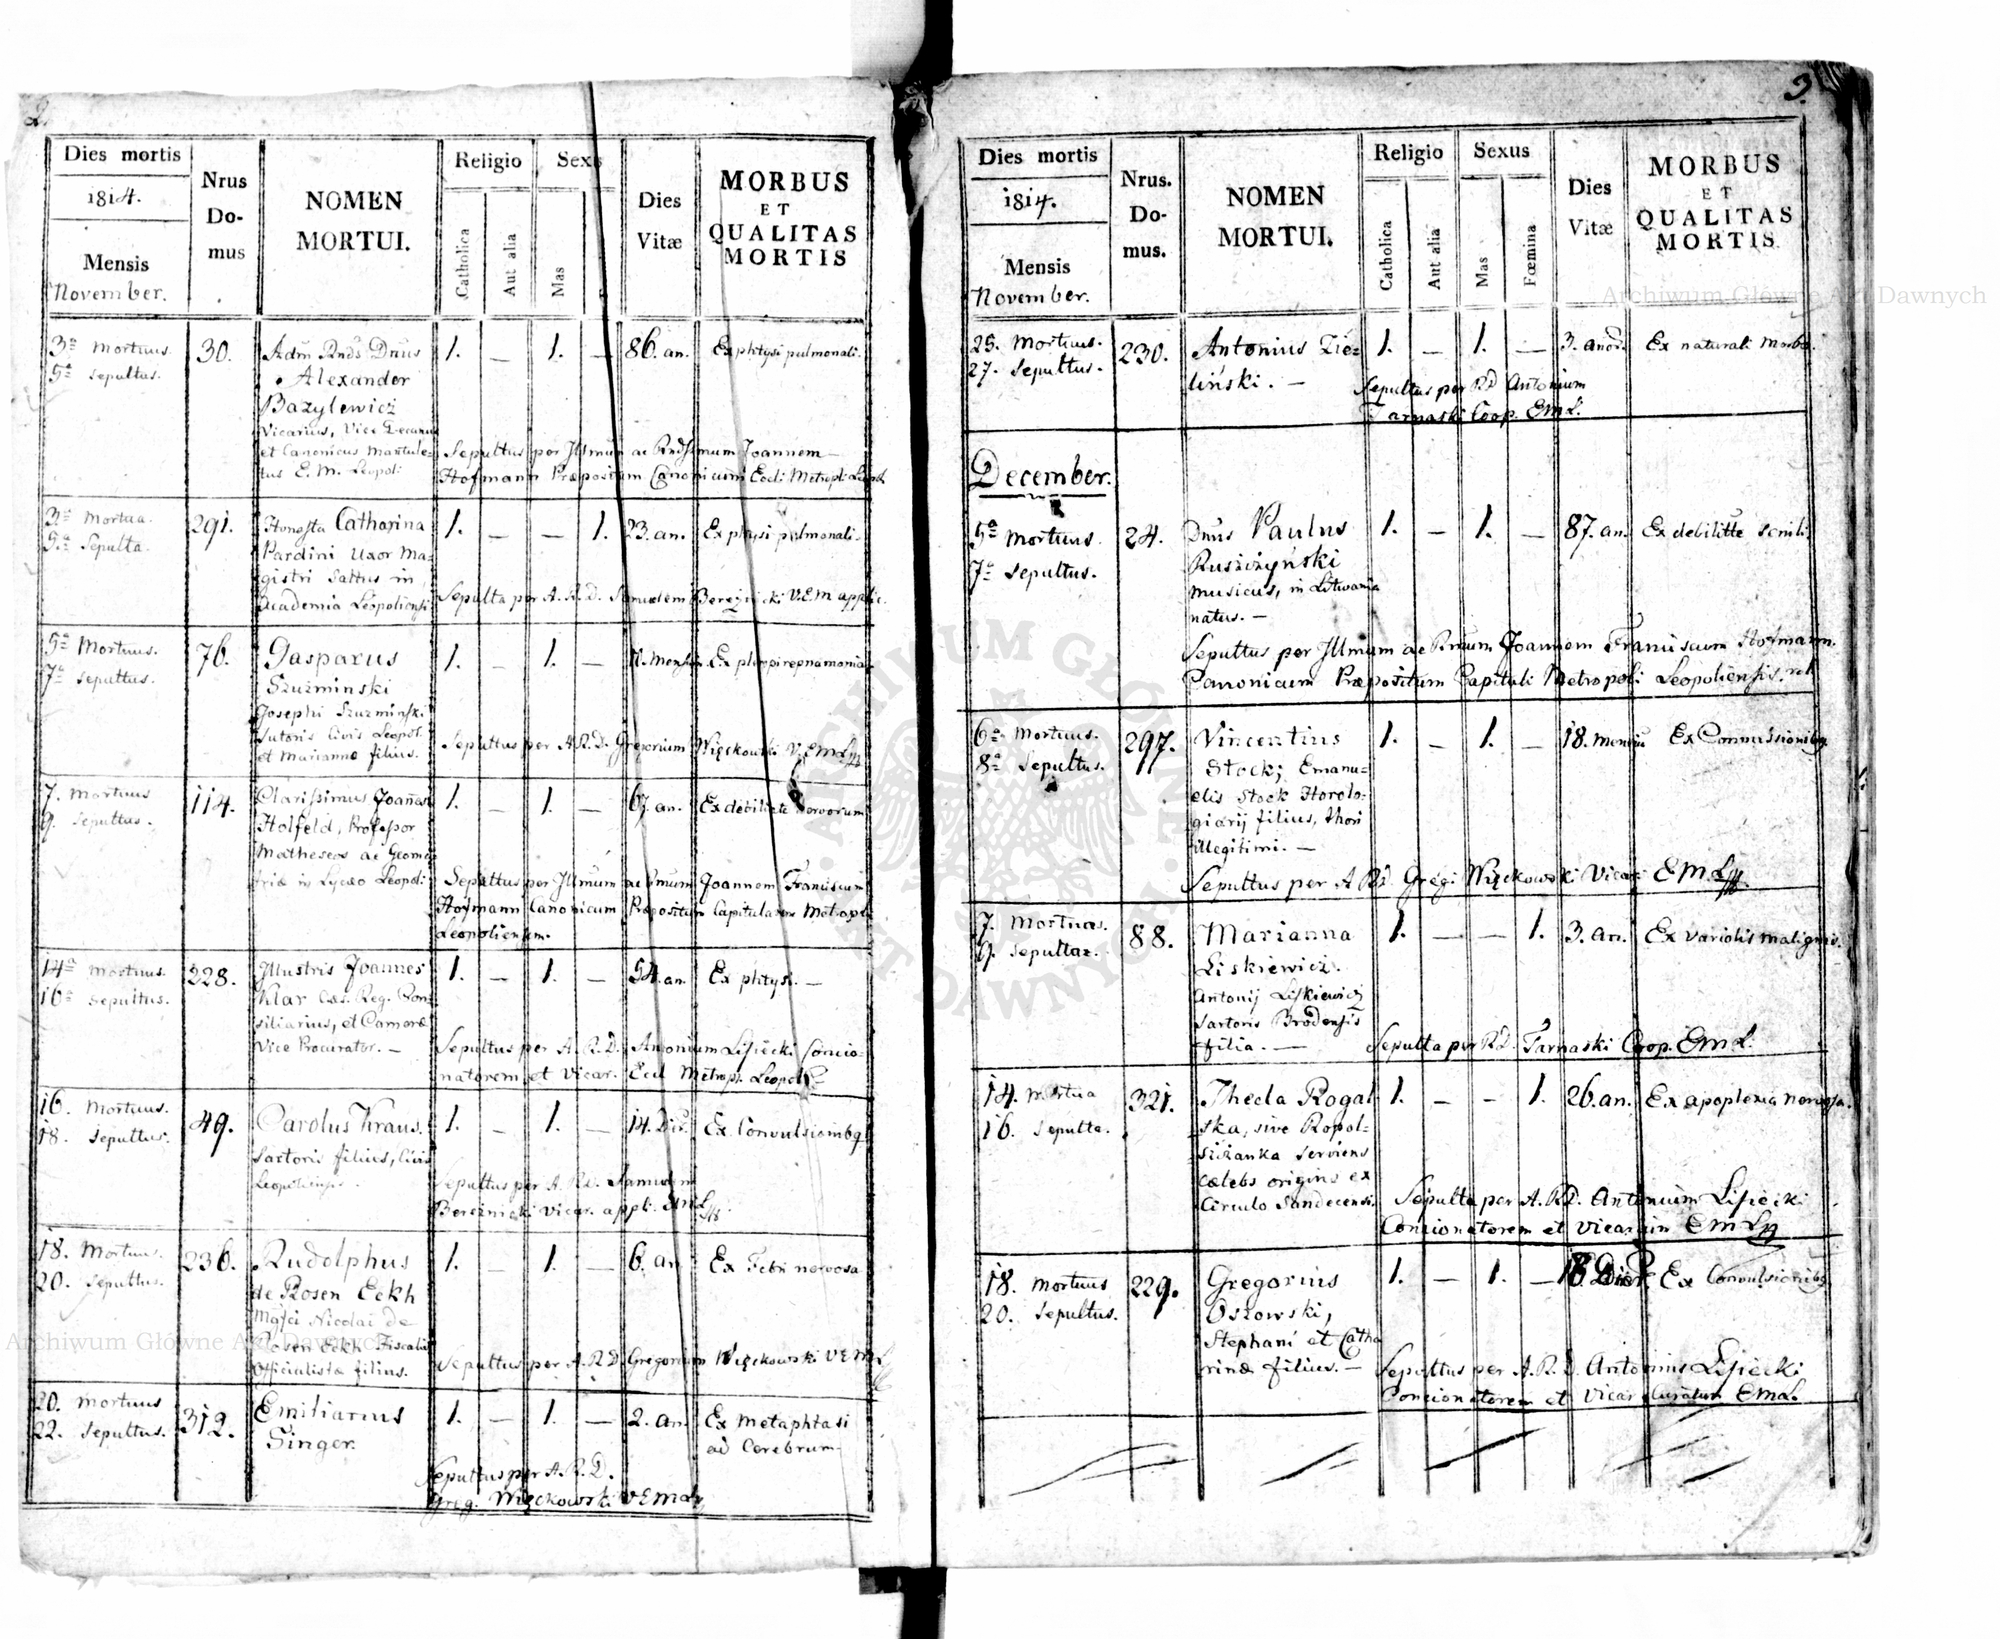 2.
Dies mortis
1814.
Mensis
November.
Nrus
Do-
mus
NOMEN
MORTUI.
Religio
Catholica
Aut alia
Sexu
Mas
Dies
Vitæ
MORBUS
ET
QUALITAS
MORTIS
3ª Mortuus.
5ª Sepultus.
30.
Adm Rnds Dnus
Alexander
Bazylewicz
Vicarius, Vice Decanus
et Canonicus
E. M. Leopoli
1. — 1. —
86. an.
Ex phtysi pulmonali.
Sepultus per Illmum ac Rndssmum Joannem
Hofmann Præpositum Canonicum Eccli Metropli Leopol
3ª Mortua.
5ª Sepulta.
291.
Honesta Catharina
Pardini Uxor Ma-
gistri Saltus in
Academia Leopoliensi
1. — — 1.
23. an.
Ex phtysi pulmonali.
Sepulta per A. R. D. Samuelem Bereźnicki V.E.M. applic.
5ª Mortuus.
7ª Sepultus.
76.
Gasparus
Szuzminski
Josephi Szuzminski
Sutoris Civis Leopol.
et Marianna filius.
1. — 1. —
Sepultus per A.R.D. Gregorium Więckowski V.EML
7. Mortuus
9. Sepultus.
114.
Clarissimus Joannes
Holfeld, Professor
Matheseos ac Geome-
triæ in Lyceo Leopoli
1. — 1. —
67. an.
Ex debilitate nervorum
Sepultus per Illmum ac Rmum Joannem Franciscum
Hofmann Canonicum Præpositum Capitularem Metropli
Leopoliensem.
14ª Mortuus.
16ª Sepultus.
228.
Illustris Joannes
Klar Cæs. Reg. Con-
siliarius, et Cameræ
Vice Procurator. —
1. — 1. —
54. an.
Ex phtysi. —
Sepultus per A. R. D. Antonium Lisiecki Concio-
natorem et Vicar. Eccl Metropl. Leopol
16. Mortuus.
18. Sepultus.
49.
Carolus Kraus.
Sartoris filius, Civis
Leopoliensis.
1. — 1. —
14. Die.
Ex Convulsionibq
Sepultus per A. Rd. Samuelem
Bereźnicki Vicar. appli. EML
18. Mortuus.
20. Sepultus.
236.
Rudolphus
de Rosen Eckh
Mgfci Nicolai de
Rosen Eckh Fiscalis
Officialistæ filius.
1. — 1. —
6. an.
Ex Febri nervosa
Sepultus per A. R. D. Gregorium Więckowski V E M L
20. Mortuus
22. Sepultus.
312.
Emilianus
Singer.
1. — 1. —
2. an.
Ex metaphtasi
ad Cerebrum
Sepultus per A. R. D.
Greg. Więckowski V E M L
3.
Dies mortis
1814.
Mensis
November.
Nrus.
Do-
mus.
NOMEN
MORTUI.
Religio
Catholica
Aut alia
Sexus
Mas
Fœmina
Dies
Vitæ
MORBUS
ET
QUALITAS
MORTIS
25. Mortuus.
27. Sepultus.
230.
Antonius Zie-
liński. —
1. — 1. —
3. anor.
Ex naturali Morbo.
Sepultus per RD Antonium
Tarnaski Coop. EML.
December.
5ª Mortuus.
7ª Sepultus.
24.
Dnus Paulus
Ruszizyński
Musicus, in Litwania
natus. —
1. — 1. —
87. an.
Ex debilitte senili
Sepultus per Illmum ac Rmum Joannem Franciscum Hofmann.
Canonicum Præpositum Capituli Metropoli Leopoliensis.
6ª Mortuus.
8ª Sepultus.
297.
Vincentius
Stock; Emanu-
elis Stock Horolo-
giarij filius, thori
illegitimi. —
1. — 1. —
18. Mensiu
Ex Convulsionibq.
Sepultus per A Rd. Gregi Więckowski Vicar: EML
7. Mortuas.
9. Sepultaz.
88.
Marianna
Liskiewicz.
Antonij Liskiewicz
Sartoris Brodensis
filia. —
1. — — 1.
3. an.
Ex variolis malignis.
Sepulta per RD. Tarnaski Coop. EML.
14. Mortua
16. Sepulta.
321.
Thecla Rogal
ska, sive Ropol-
sciżanka Serviens
cælebs origins ex
Circulo Sandecensi
1. — — 1.
26. an.
Ex apoplexia nervosa.
Sepulta per A. RD. Antonium Lisiecki
Concionatorem et Vicarium EML
18. Mortuus
20. Sepultus.
229.
Gregorius
Oszowski,
Stephani et Catha
rinæ filius. —
1. — 1. —
18 Dier.
Ex Convulsionibq
Sepultus per A. R. D. Antonius Lisiecki
Concionatorem et Vicar Curatum EML.
Archiwum Główne Akt Dawnych
Archiwum Główne Akt Dawnych
ARCHIWUM GŁÓWNE · AKT DAWNYCH ·